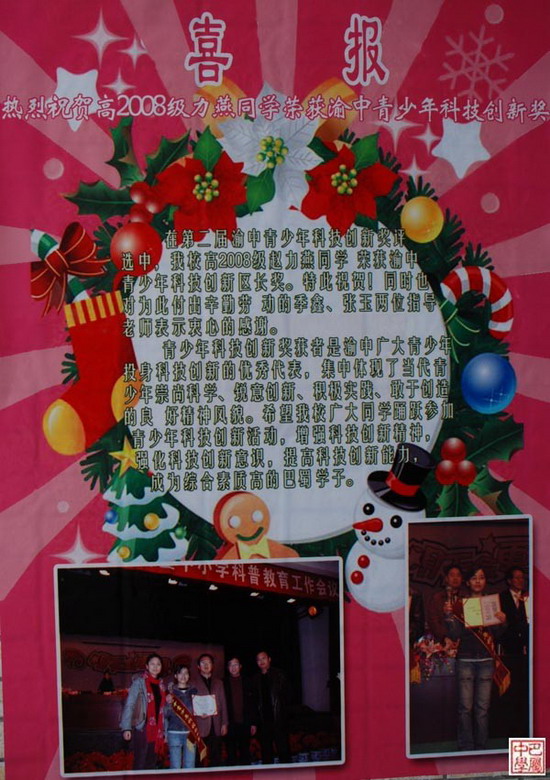 喜报
热烈祝贺高2008级力燕同学荣获渝中青少年科技创新奖
在第二届渝中青少年科技创新奖评
选中，我校高2008级赵力燕同学 荣获渝中
青少年科技创新区长奖。特此祝贺！同时也
对为此付出辛勤劳 动的季鑫、张玉两位指导
老师表示衷心的感谢。
青少年科技创新奖获者是渝中广大青少年
投身科技创新的优秀代表，集中体现了当代青
少年崇尚科学、锐意创新、积极实践、敢于创造
的良 好精神风貌。希望我校广大同学踊跃参加
青少年科技创新活动，增强科技创新精神，
强化科技创新意识，提高科技创新能力，
成为综合素质高的巴蜀学子。
中小学科普教育工作会议
巴蜀
中学